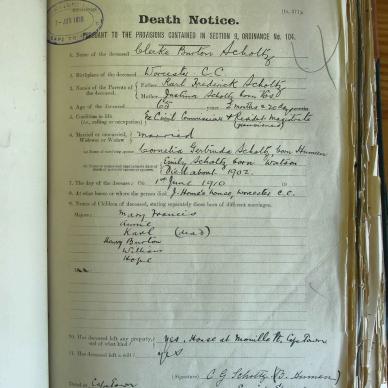 Death Notice.
PURSUANT TO THE PROVISIONS CONTAINED IN SECTION 9, ORDINANCE No. 104.
1. Name of the deceased Clerke Burton Scholtz
2. Birthplace of the deceased Worcester C.C.
3. Names of the Parents of the deceased Father Karl Frederick Scholtz
Mother Scholtz born Vos
4. Age of the deceased 65 years 2 months & 20 days
5. Condition in life Ex Civil Commissioner & Resdt Magistrate
(i.e., calling or occupation) (pensioned)
6. Married or unmarried, Widower or Widow married
Cornelia Gertruida Scholtz, born Human
Emily Scholtz born Watson
Died about 1902.
7. The day of the decease On 1st June 1910
8. At what house or where the person died J. Home's house, Worcester C.C.
9. Names of Children of deceased, stating separately those born of different marriages.
Majors: Mary Francis
Annie
Karl (dead)
Henry Burton
William
Hope
10. Has deceased left any property, and of what kind? Yes. House at Cape Town
11. Has deceased left a will? Yes
(Signature) C G Scholtz (B. Human)
Dated at Cape Town